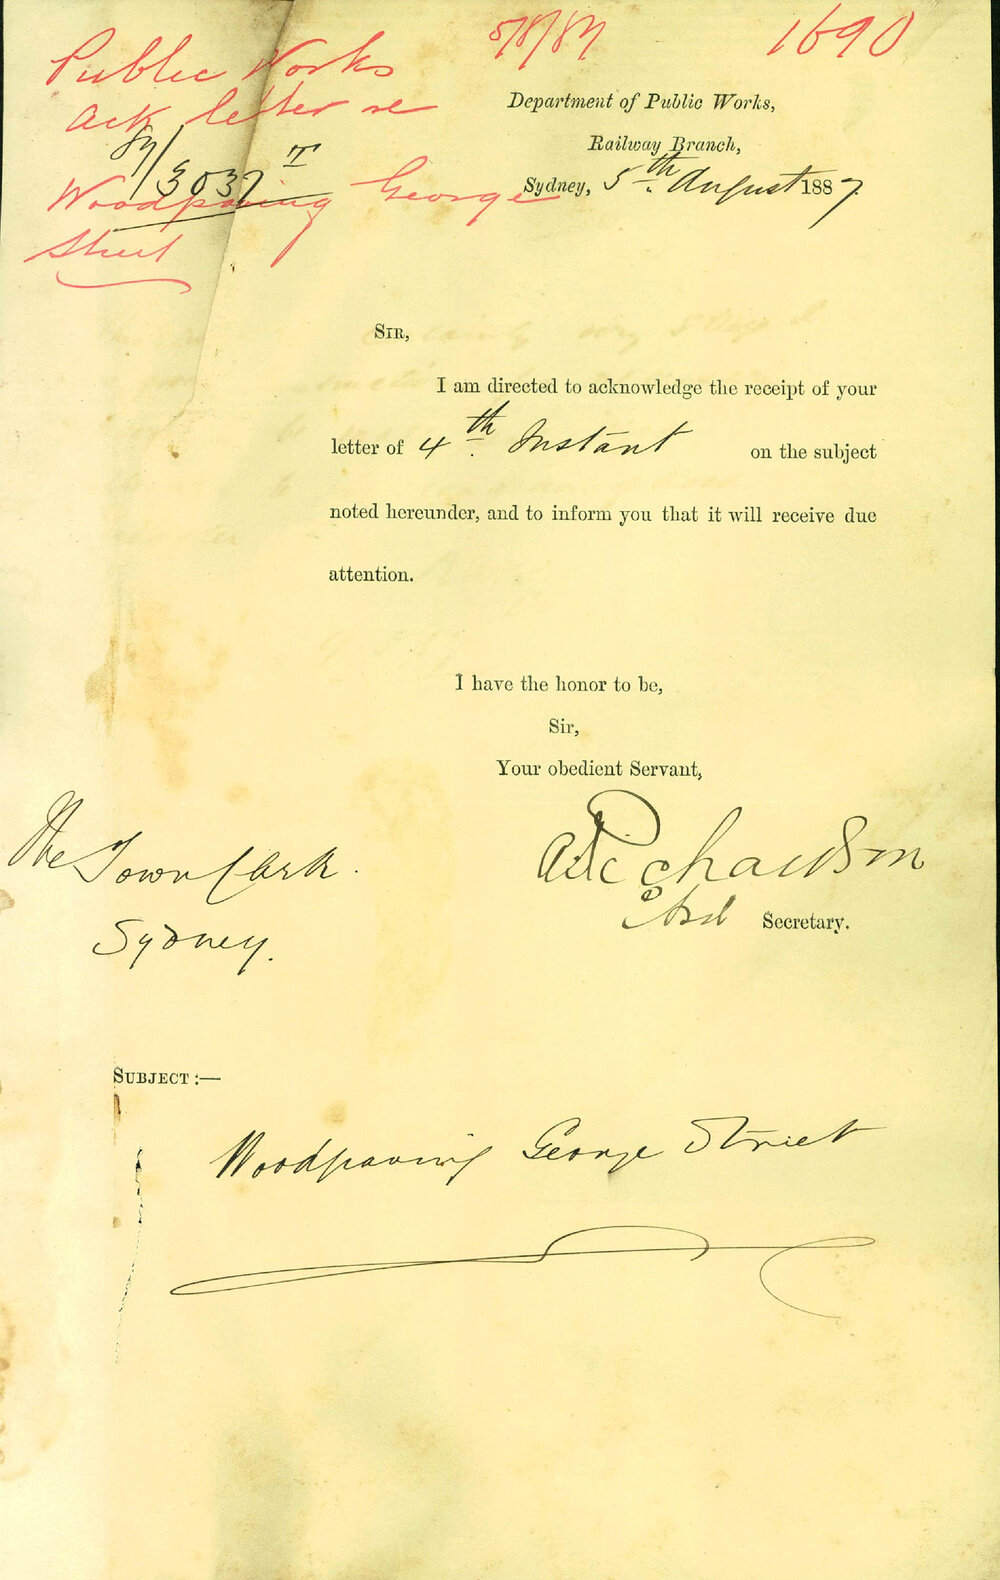 5/8/87
1690
Public Works
Ack letter re
Woodpaving George
Street
87/3037 T
Department of Public Works,
Railway Branch,
Sydney, 5th August 1887.
SIR,
I am directed to acknowledge the receipt of your
letter of 4th Instant on the subject
noted hereunder, and to inform you that it will receive due
attention.
I have the honor to be,
Sir,
Your obedient Servant,
Richardson
Secretary.
The Town Clerk.
Sydney.
SUBJECT :—
Woodpaving George Street